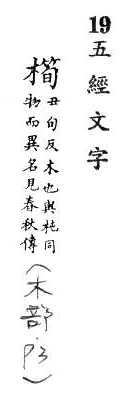 19 五經文字
橁
丑旬反木也與杶同
物而異名見春秋傳
(木部.P3)